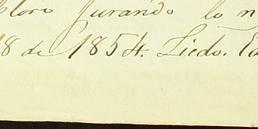 loro Jurando lo n
8 de 1854. Licdo.